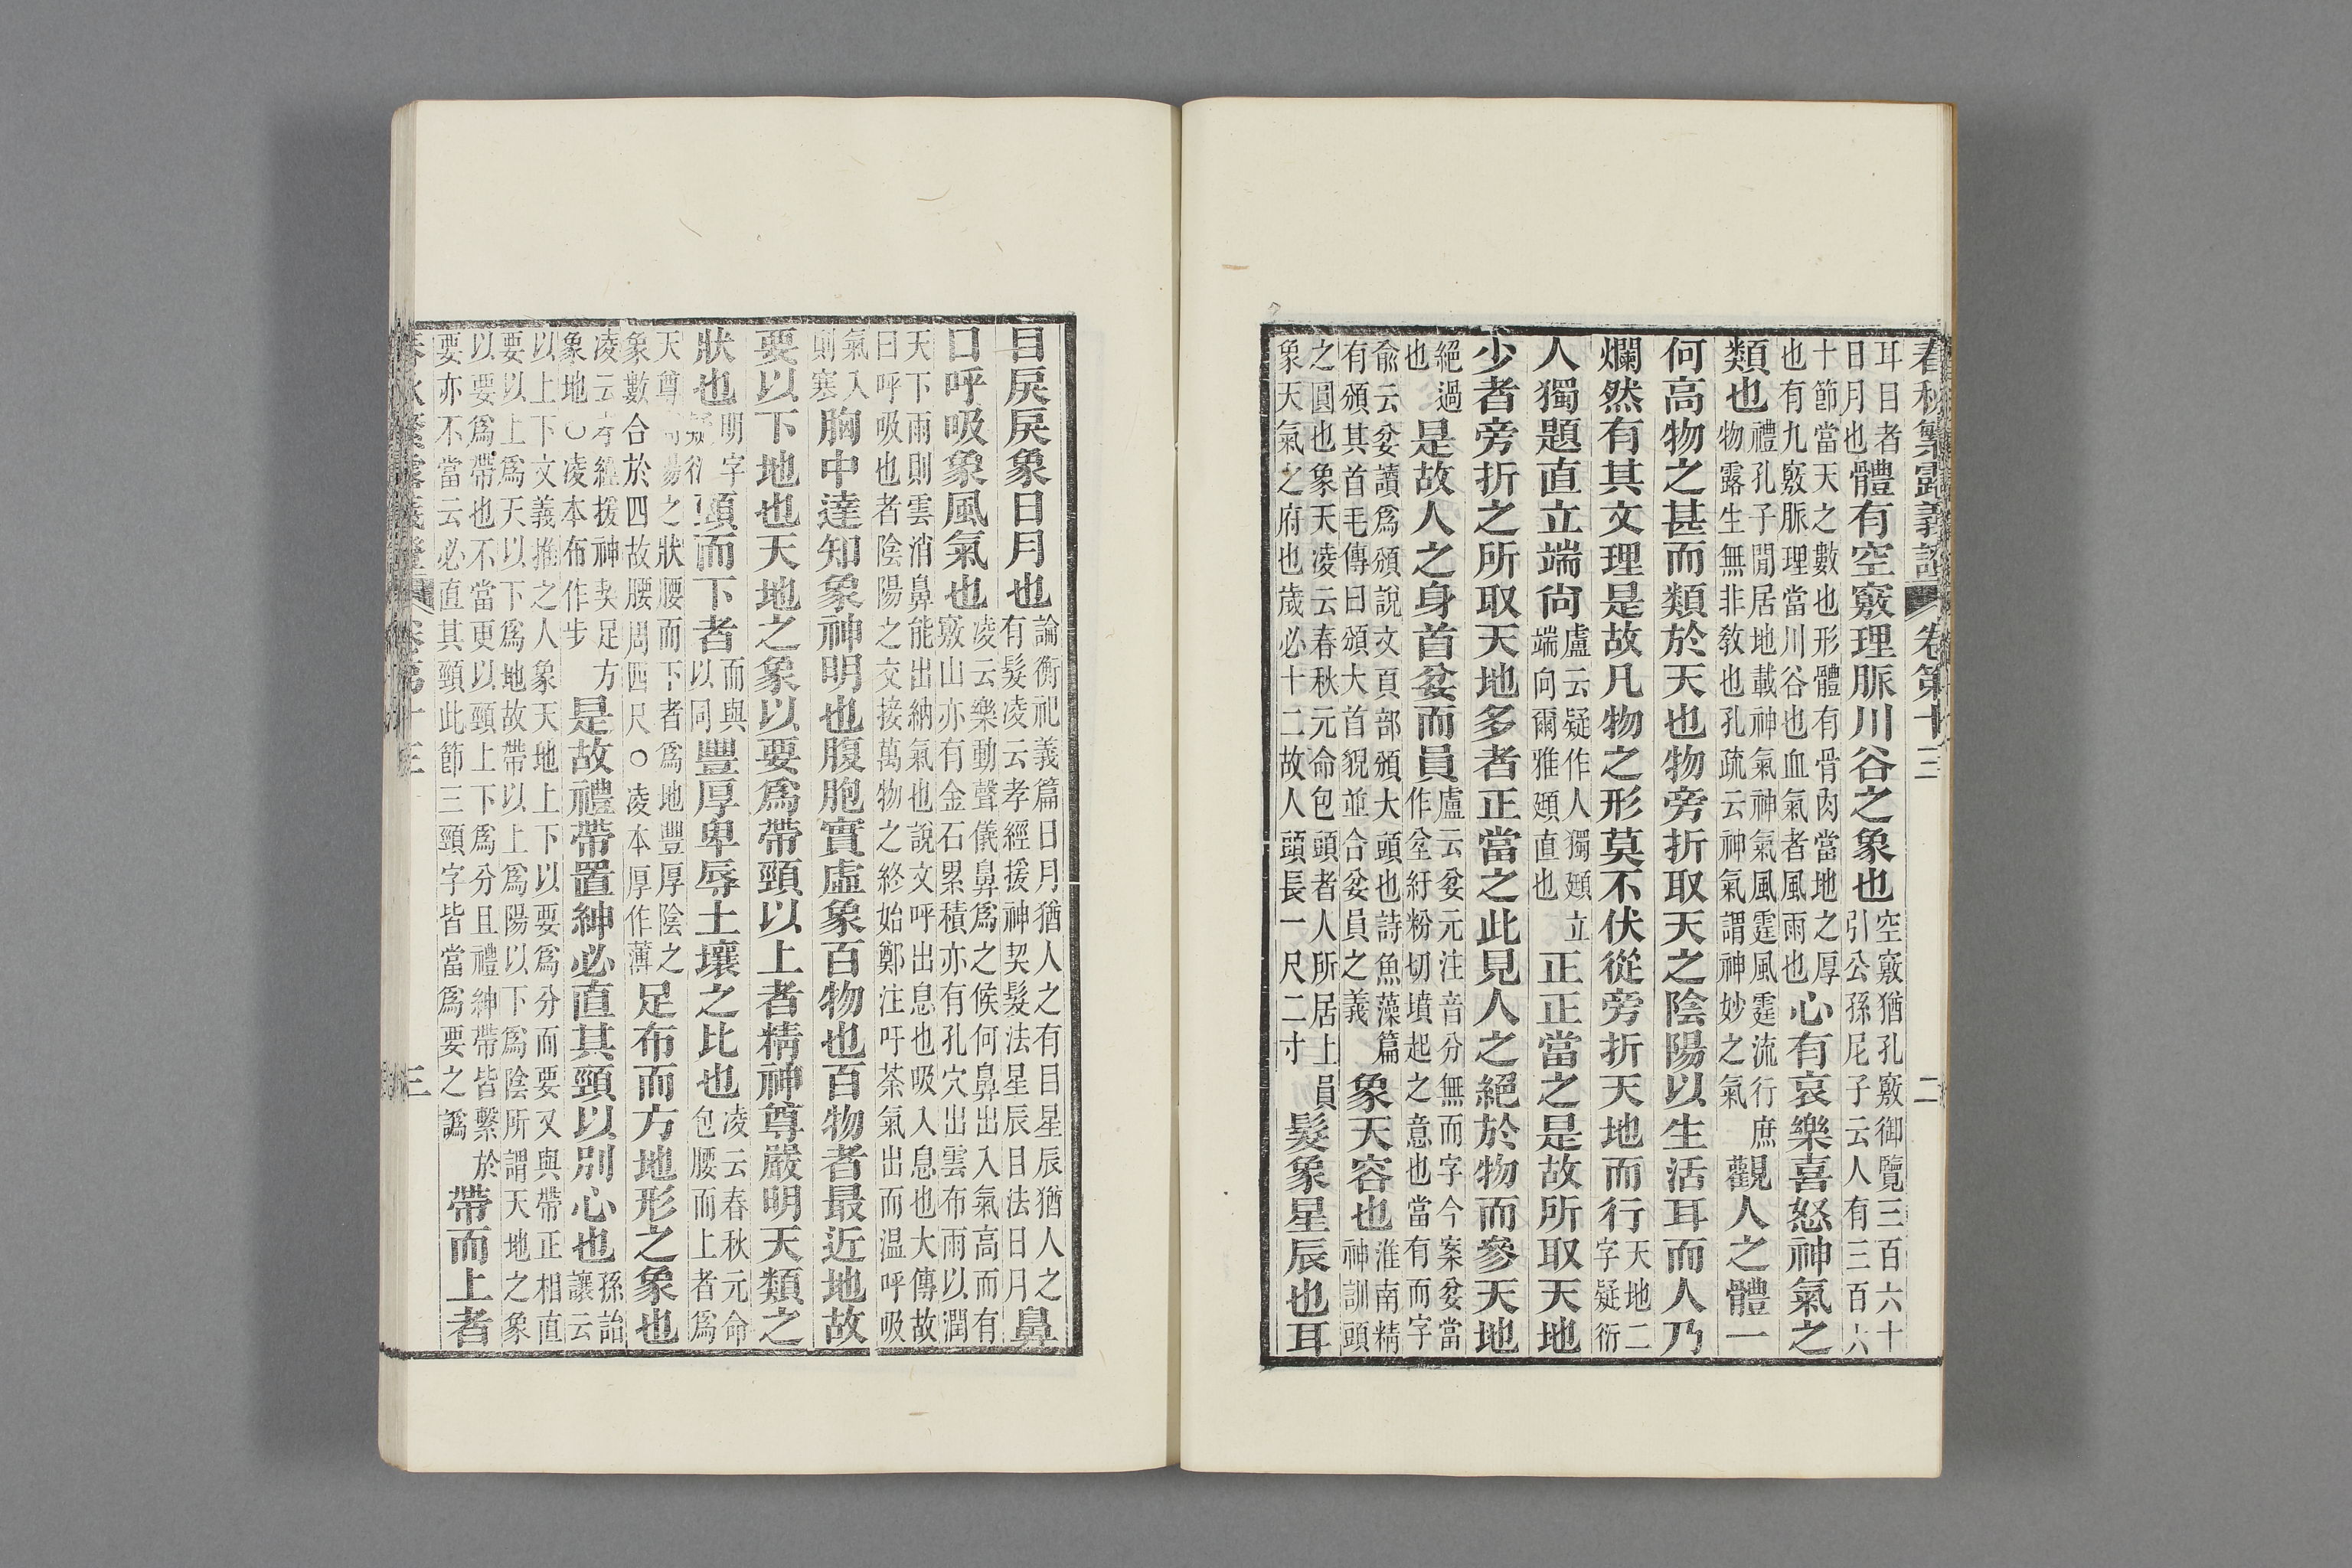 春秋繁露義證 卷第十三 二
耳目者日月也體有空竅理脈川谷之象也空竅猶孔竅御覽三百六十引公孫尼子云人有三百六
十節當天之數也形體有骨肉當地之厚也有九竅脈理當川谷也血氣者風雨也心有哀樂喜怒神氣之
類也禮孔子閒居地載神氣神氣風霆風霆流行庶物露生無非教也孔疏云神氣謂神妙之氣觀人之體一
何高物之甚而類於天也物旁折取天之陰陽以生活耳而人乃
爛然有其文理是故凡物之形莫不伏從旁折天地而行天地二字疑衍
人獨題直立端尙盧云疑作人獨頲立端向爾雅頲直也正正當之是故所取天地
少者旁折之所取天地多者正當之此見人之絕於物而參天地
絕過也是故人之身首妢而員盧云妢元注音分無而字今案妢當作坌紆粉切墳起之意也當有而字
俞云妢讀爲頒說文頁部頒大頭也詩魚藻篇有頒其首毛傳曰頒大首貌並合妢員之義象天容也淮南精神訓頭
之圓也象天凌云春秋元命包頭者人所居上員象天氣之府也歲必十二故人頭長一尺二寸髮象星辰也耳
目戾戾象日月也論衡祀義篇日月猶人之有目星辰猶人之有髮凌云孝經援神契髮法星辰目法日月鼻
口呼吸象風氣也凌云樂動聲儀鼻爲之候何鼻出入氣高而有竅山亦有金石累積亦有孔穴出雲布雨以潤
天下雨則雲消鼻能出納氣也說文呼出息也吸入息也大傳故曰呼吸也者陰陽之交接萬物之終始鄭注吁荼氣出而温呼吸
氣入則寒胸中達知象神明也腹胞實虛象百物也百物者最近地故
要以下地也天地之象以要爲帶頸以上者精神尊嚴明天類之
狀也明字疑衍頸而下者而與以同豐厚卑辱土壤之比也凌云春秋元命包腰而上者爲
天尊高陽之狀腰而下者爲地豐厚陰之象數合於四故腰周四尺○凌本厚作薄足布而方地形之象也
凌云孝經援神契足方象地○凌本布作步是故禮帶置紳必直其頸以別心也孫詒讓云
以上下文義推之人象天地上下以要爲分而要又與帶正相直要以上爲天以下爲地故帶以上爲陽以下爲陰所謂天地之象
以要爲帶也不當更以頸上下爲分且禮紳帶皆繫於要亦不當云必直其頸此節三頸字皆當爲要之譌帶而上者
春秋繁露義證 卷第十三 三